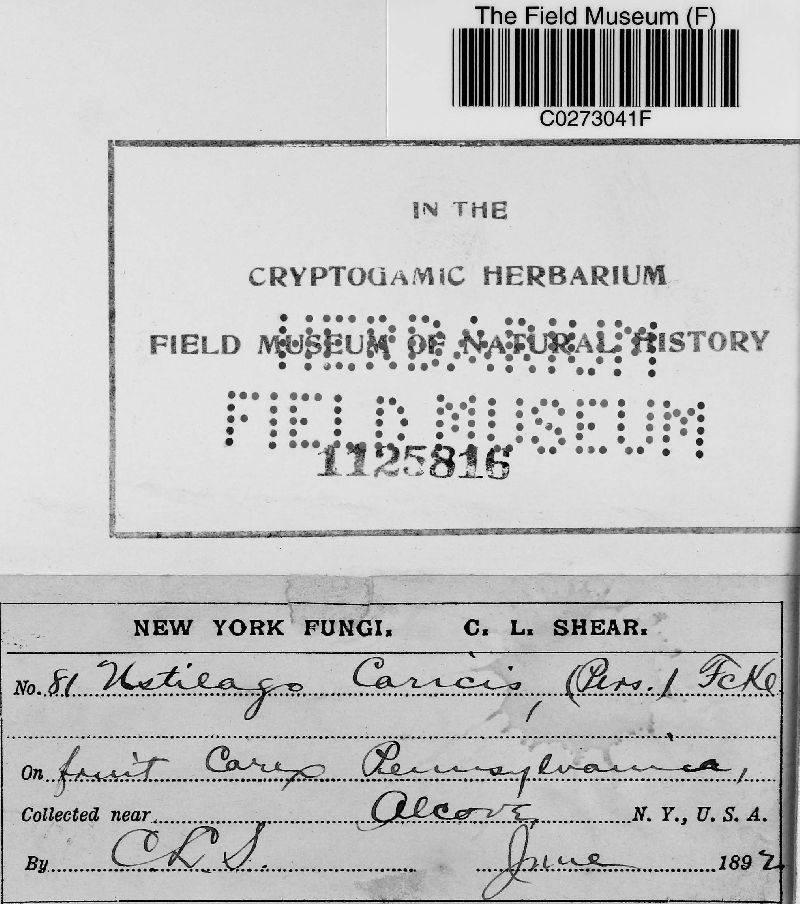 The Field Museum (F)
C0273041F
IN THE
CRYPTOGAMIC HERBARIUM
FIELD MUSEUM OF NATURAL HISTORY
HERBARIUM
FIELD MUSEUM
1125816
NEW YORK FUNGI. C. L. SHEAR.
No. 81 Ustilago Caricis, (Pers.) Fckl
On fruit Carex Pennsylvanica,
Collected near Alcove, N. Y., U. S. A.
By C. L. S. June 1892